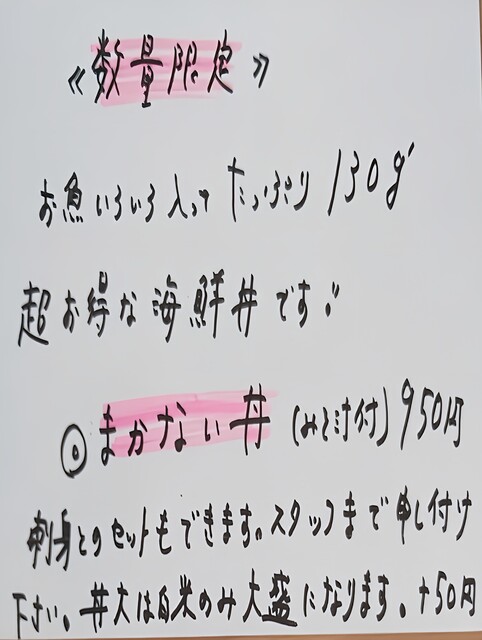 《数量限定》
お魚いろいろ入ってたっぷり130g
超お得な海鮮丼です!!
◎まかない丼(みそ汁付)950円
刺身とのセットもできます。スタッフまで申し付け
下さい。丼大は白米のみ大盛になります。+50円